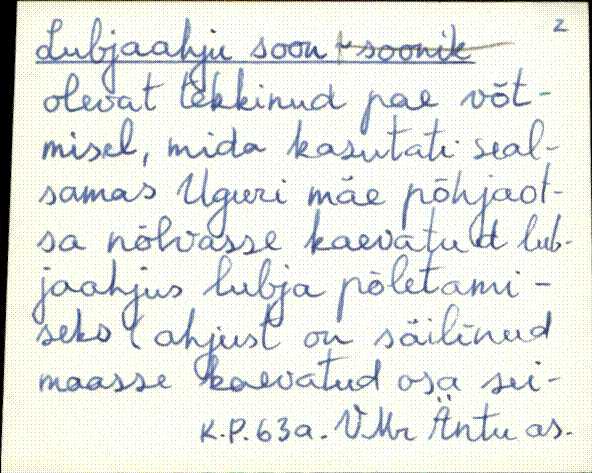 2
Lubjaahju soon, -soonik
olevat tekkinud pae võt-
misel, mida kasutati seal-
samas Uguri mäe põhjaot-
sa nõlvasse kaevatud lub-
jaahjus lubja põletami-
seks (ahjust on säilinud
maasse kaevatud osa sei-
K.P. 63a. VMr Äntu as.